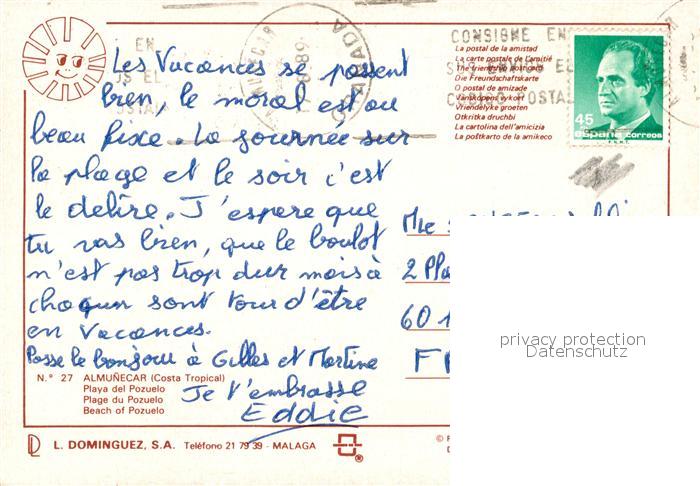 CONSIGNE EN
EN
Les Vacances se passent
bien, le moral est au
beau fixe. La journée sur
la plage et le soir c'est
le delire. J'espere que
tu vas bien, que le boulot
n'est pas trop dur mais à
chaqun sont tour d'être
en vacances.
Passe le bonjour à Gilles et Martine
Je t'embrasse
Eddie
La postal de la amistad
La carte postale de l'amitié
The friendship postcard
Die Freundschaftskarte
O postal de amizade
Vänskapens vykort
Vriendelyke groeten
Otkritka druchbi
La cartolina dell'amicizia
La poŝtkarto de la amikeco
45
España correos
F.N.M.T.
Mle
2 Pla
60 1
F
privacy protection
Datenschutz
N.° 27 ALMUÑECAR (Costa Tropical)
Playa del Pozuelo
Plage du Pozuelo
Beach of Pozuelo
L. DOMINGUEZ, S.A. Teléfono 21 79 39 - MALAGA
®